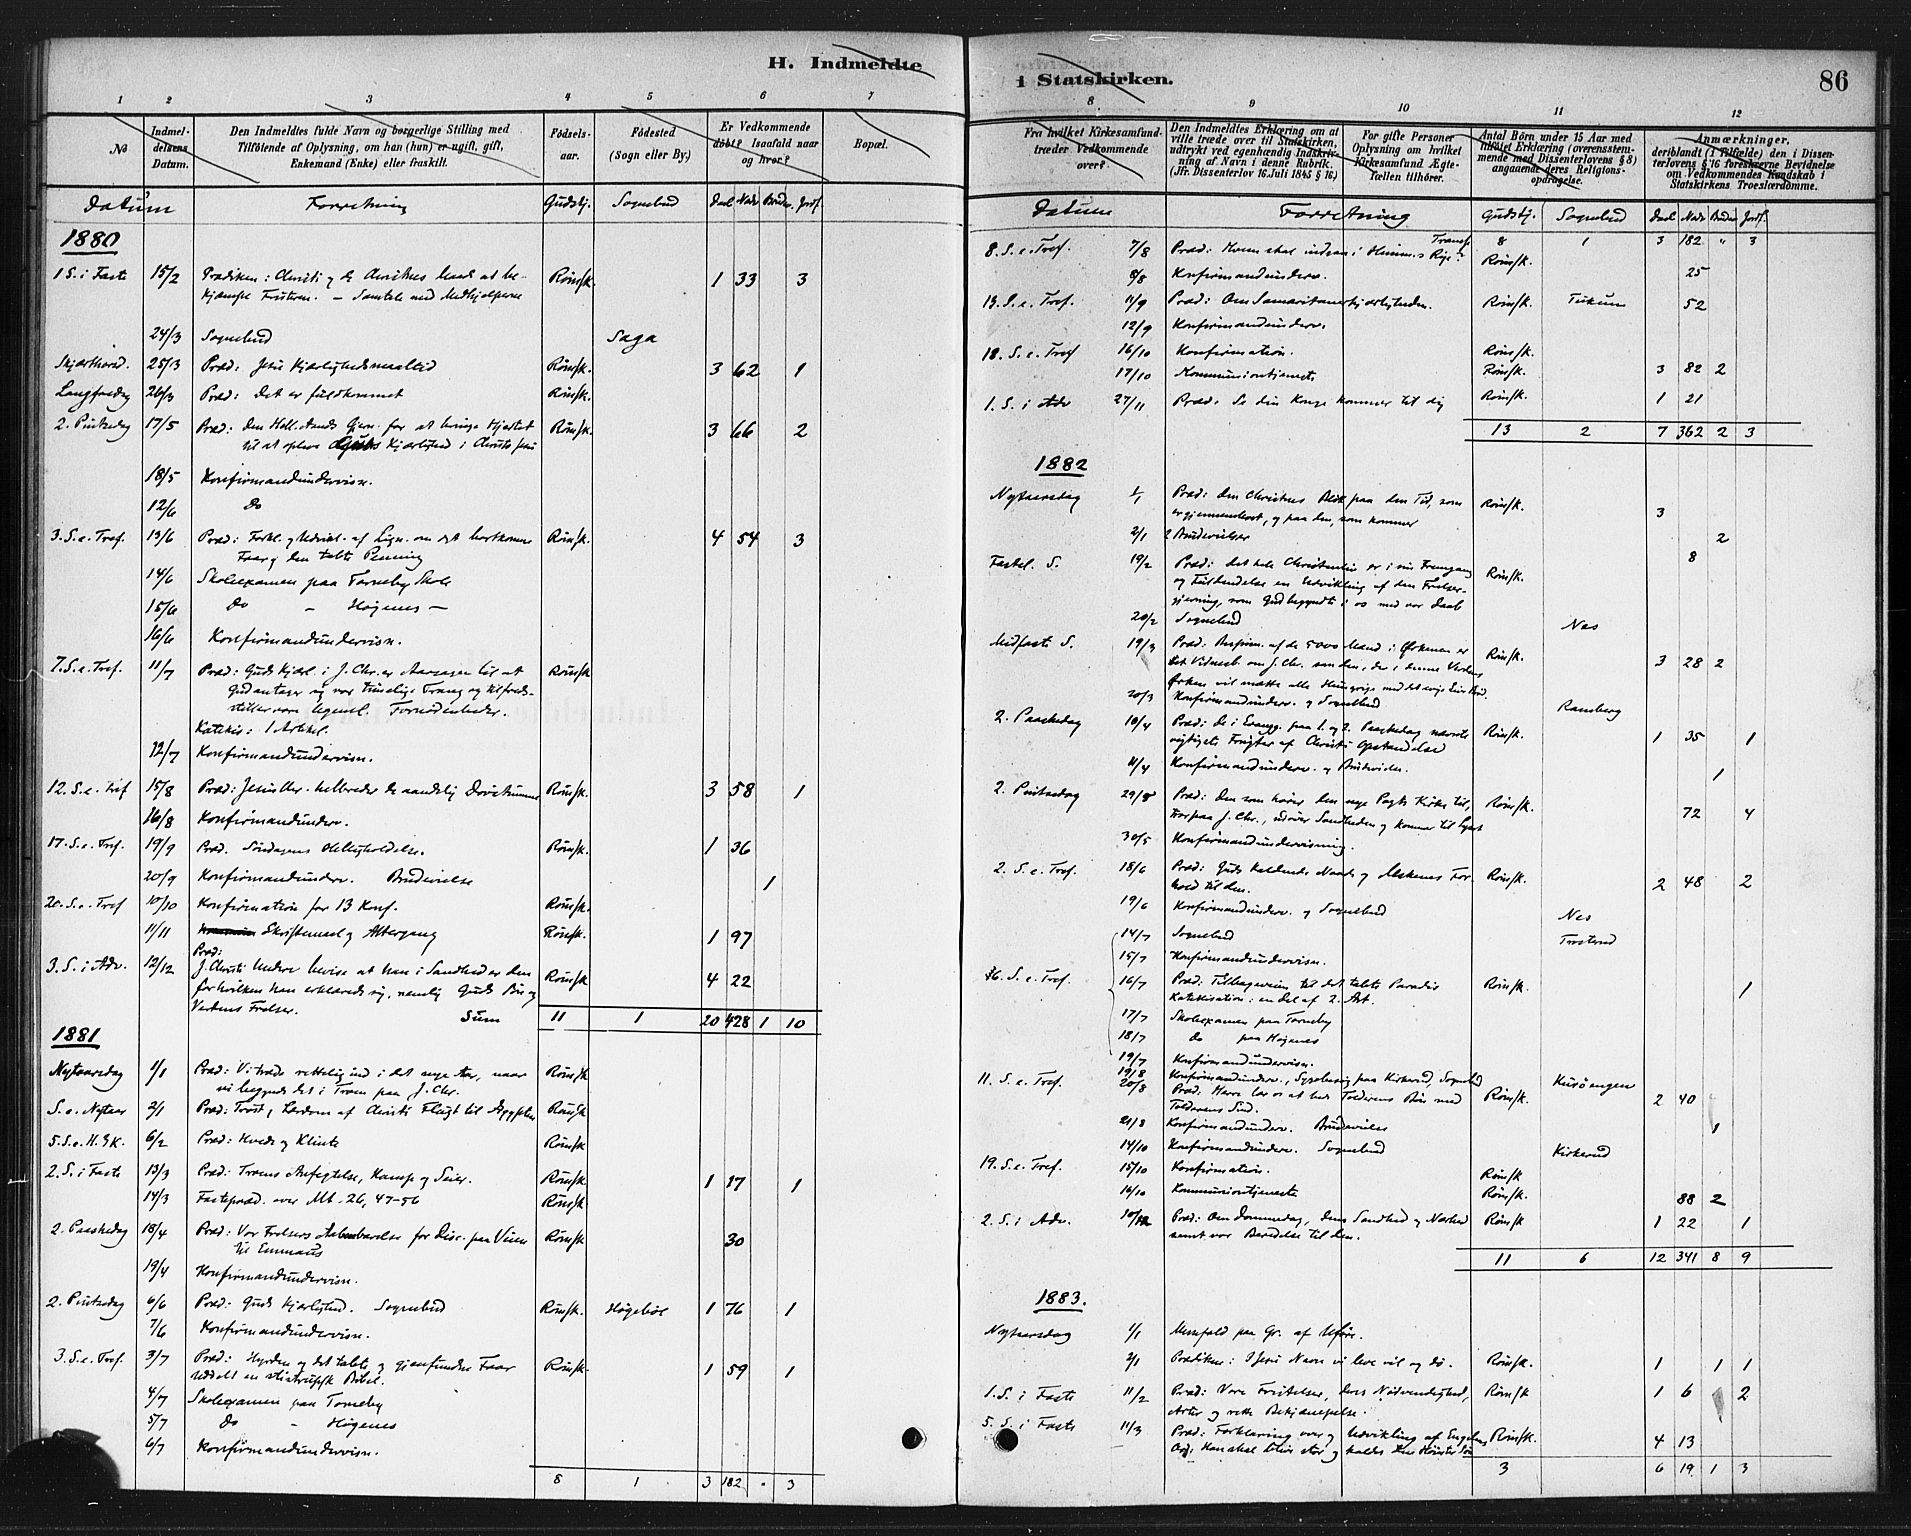 H. Indmeldte
1 2 3 4 5 6 7
No
Indmel-
delsens
Datum.
Den Indmeldtes fulde Navn og borgerlige Stilling med
Tilföiende af Oplysning, om han (hun) er ugift, gift,
Enkemand (Enke) eller fraskilt.
Födsels-
aar.
Födested
(Sogn eller By.)
Er Vedkommende
döbt? Isaafald naar
og hvor?
Bopæl.
Datum Forretning Gudstj. Sognebud Daab Nadv Brudev. Jordf.
1880
1 S. i Faste 15/2 Prædiken: Christi og de Christnes Maade at be- Römsk. 1 33 3
kjæmpe Fristeren. - Samtale med Medhjælperne
24/3 Sognebud Saga
Skjærthorsd. 25/3 Præd: Jesu Kjærlighedsmaaltid Römsk. 3 62 1
Langfredag 26/3 Præd: Det er fuldkommet Römsk.
2. Pintsedag 17/5 Præd: Den Hell. Aands Gjern. for at bringe Hjertet Römsk. 3 66 2
til at opleve Guds Kjærlighed i Christo Jesu
18/5 Konfirmandundervisn.
12/6 Do
3. S. e. Tref. 13/6 Præd: Forkl. og Udvikl. af Lign. om det bortkomne Römsk. 4 54 3
Faar og den tabte Penning
14/6 Skoleexamen paa Torneby Skole
15/6 Do - Högenes -
16/6 Konfirmandundervisn.
7. S. e. Tref. 11/7 Præd: Guds Kjærl. i J. Chr. er Aarsagen til at Römsk
Gud antager sig vor timelige Trang og tilfreds-
stiller vore legeml. Fornödenheder.
Katekis: 1 Artikel.
12/7 Konfirmandundervisn.
12. S. e. Tref 15/8 Præd: Jesus Chr. helbreder de aandelig Dövstumme Römsk. 3 58 1
16/8 Konfirmandunderv.
17. S. e. Tref. 19/9 Præd. Söndagens Helligholdelse. Römsk. 1 36
20/9 Konfirmandunderv. Brudevielse 1
20. S. e. Tref 10/10 Konfirmation for 13 Konf. Römsk.
11/11 Skriftemaal og Altergang Römsk. 1 97
Præd:
3. S. i Adv. 12/12 J. Christi Undere bevise at han i Sandhed er den Römsk 4 22
for hvilken han erklærede sig, nemlig Guds Sön og
Verdens Frelser. Sum 11 1 20 428 1 10
1881
Nytaarsdag 1/1 Præd: Vi træde rettelig ind i det nye Aar, naar Römsk
vi begynde det i Troen paa J. Chr.
S. e. Nytaar 2/1 Præd: Tröst og Lærdom af Christi Flugt til Ægypten Römsk
5. S. e. H. 3 K. 6/2 Præd: Hvede og Klinte Römsk
2. S. i Faste 13/3 Præd: Troens Anfegtelse, Kamp og Seier. Römsk 1 17 1
14/3 Fastepræd. over Mt. 26, 47-56 Römsk
2. Paaskedag 18/4 Præd: Vor Frelsers Aabenbarelse for Disc. paa Veien Römsk 30
til Emmaus
19/4 Konfirmandundervisn.
2. Pintsedag 6/6 Præd: Guds Kjærlighed. Sognebud Römsk. Högeböl 1 76 1
7/6 Konfirmandundervisn.
3. S. e. Tref. 3/7 Præd: Hyrden og det tabte og gjenfundne Faar Römsk. 1 59 1
Uddelt en Bibel.
4/7 Skoleexamen paa Torneby
5/7 Do - Högenes
6/7 Konfirmandundervisn.
8 1 3 182 . 3
i Statskirken. 86
8 9 10 11 12
Fra hvilket Kirkesamfund
træder Vedkommende
over?
Den Indmeldtes Erklæring om at
ville træde over til Statskirken,
udtrykt ved egenhændig Indskriv-
ning af Navn i denne Rubrik.
(Jfr. Dissenterlov 16. Juli 1845 § 16.)
For gifte Personer
Oplysning om hvilket
Kirkesamfund Ægte-
fællen tilhörer.
Antal Börn under 15 Aar med
tilföiet Erklæring (overensstem-
mende med Dissenterlovens § 8)
angaaende deres Religions-
opdragelse.
Anmærkninger,
deriblandt (i Tilfælde) den i Dissen-
terlovens § 16 foreskrevne Bevidnelse
om Vedkommendes Kundskab i
Statskirkens Troeslærdomme.
Datum Forretning Gudstj. Sognebud Daab Nadv Brudev Jordf.
Transp. 8 1 3 182 " 3
8. S. e. Tref. 7/8 Præd: Hvem skal indgaa i Himmer. Rige? Römsk.
8/8 Konfirmandunderv. 25
13. S. e. Tref. 11/9 Præd: Om Samaritanerkjærligheden. Römsk. Tukun 52
12/9 Konfirmandunderv.
18. S. e. Tref 16/10 Konfirmation. Römsk.
17/10 Kommuniontjeneste Römsk. 3 82 2
1. S. i Adv 27/11 Præd. Se din Konge kommer til dig Römsk. 1 21
13 2 7 362 2 3
1882
Nytaarsdag 1/1 Præd: Den Christnes Blik paa den Tid, som Römsk. 3
er gjennemlevet, og paa den, som kommer
2/1 2 Brudevielser 2
Fastel. S. 19/2 Præd: Det hele Christenliv er i sin Fremgang Römsk. 8
og Fuldendelse en Udvikling af den Frelser-
gjerning, som Gud begyndte i os med vor Daab
20/2 Sognebud Nes
Midfaste S. 19/3 Præd. Bespisn. af de 5000 Mænd i Örkenen er Römsk. 3 28 2
et Vidnesb. om J. Chr. som den, der i denne Verdens
Örken vil mætte alle Hungrige med det evige Livs Bröd.
20/3 Konfirmandunderv. og Sognebud Ramberg
2. Paaskedag 10/4 Præd: De i Evangg. paa 1. og 2. Paaskedag nævnte Römsk. 1 35 1
vigtigste Frugter af Christi Opstandelse
11/4 Konfirmandunderv. og Brudevielse. 1
2. Pintsedag 29/5 Præd: Den som hörer den nye Pagts Kirke til, Römsk. 72 4
tror paa J. Chr., udöver Sandheden og kommer til Lyset
30/5 Konfirmandundervisning.
2. S. e. Tref. 18/6 Præd: Guds kaldende Naade og Menskenes For- Römsk. 2 48 2
hold til den.
19/6 Konfirmandunderv. og Sognebud Nes
14/7 Sognebud Trosterud
15/7 Konfirmandundervisn.
6. S. e. Tref. 16/7 Præd: Tilbageveien til det tabte Paradis Römsk. 1
Katekisation: en Del af 2. Art.
17/7 Skoleexamen paa Torneby
18/7 do paa Högenes
19/7 Konfirmandundervisn.
19/8 Konfirmandunderv., Sygebesög paa Kirkerud, Sognebud Kusöengen
11. S. e. Tref. 20/8 Præd. Herre lær os at bede Tolderens Bön med Römsk. 2 40
Tolderens Sind.
21/8 Konfirmandunderv. Brudevielse 1
14/10 Konfirmandunderv. Sognebud Kirkerud
19. S. e. Tref. 15/10 Konfirmation. Römsk
16/10 Kommuniontjeneste Römsk. 88 2
2. S. i Adv. 10/12 Præd: Om Dommedag, dens Sandhed og Nærhed Römsk 1 22 1
samt vor Beredelse til den.
11 6 12 341 8 9
1883.
Nytaarsdag 1/1 Messefald paa Gr. af Uföre.
2/1 Prædiken: I Jesu Navn vi leve vil og dö. Römsk. 1 1 1
1. S. i Faste 11/2 Præd: Vore Fristelser, deres Nödvendighed, Römsk 1 6 2
Arter og rette Bekjæmpelse.
5. S. i Faste 11/3 Præd: Forklaring over og Udvikling af Engelens Römsk. 4 13
Ord: Han skal blive stor og kaldes den Höiestes Sön
3 6 19 1 3